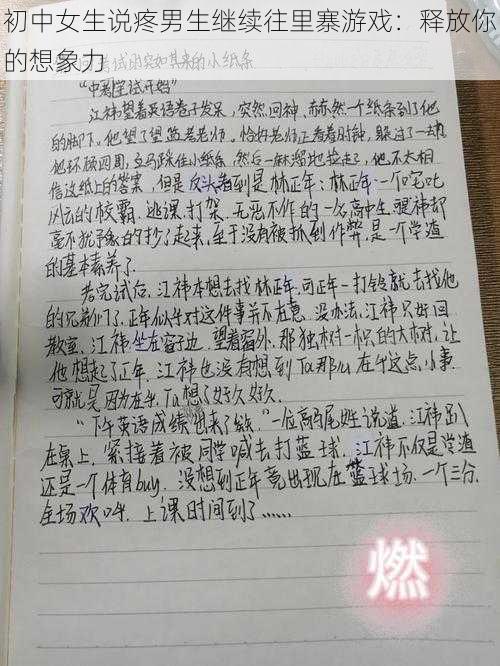 初中女生说疼男生继续往里寨游戏：释放你
的想象力
考试的突如其来的小纸条
"中考学试开始"
江祎望着英语卷子发呆，突然回神，赫然一个纸条到了他
的脚下。他望了望监考老师。恰好老师正看着时钟，躲过了一劫
他环顾四周，立马踩住小纸条，然后一麻溜地捡起了，他不太相
信这纸上的答案，但是反头看到是林正年：林正年：一个叱咤
风云的校霸，逃课、打架、无恶不作的一名高中生，江祎却
毫不犹豫的抄了起来，至于没有被抓到作弊，是一个学渣
的基本素养了。
考完试后，江祎本想去找林正年，可正年一打铃就去找他
的兄弟们了，正年似乎对这件事并不在意，没办法，江祎只好回
教室，江祎坐在窗子边，望着窗外，那独树一帜的大树，让
他想起了正年，江祎也没有想到Ta那么在乎这点小事，
可就是因为在乎，Ta想了好久好久。
"下午英语成绩出来了欸，"一位高马尾姓说道，江祎趴
在桌上，紧接着被同学喊去打蓝球，江祎不仅是学渣
还是一个体育buy，没想到正年竟出现在篮球场，一个三分，
全场欢呼，上课时间到了……
燃